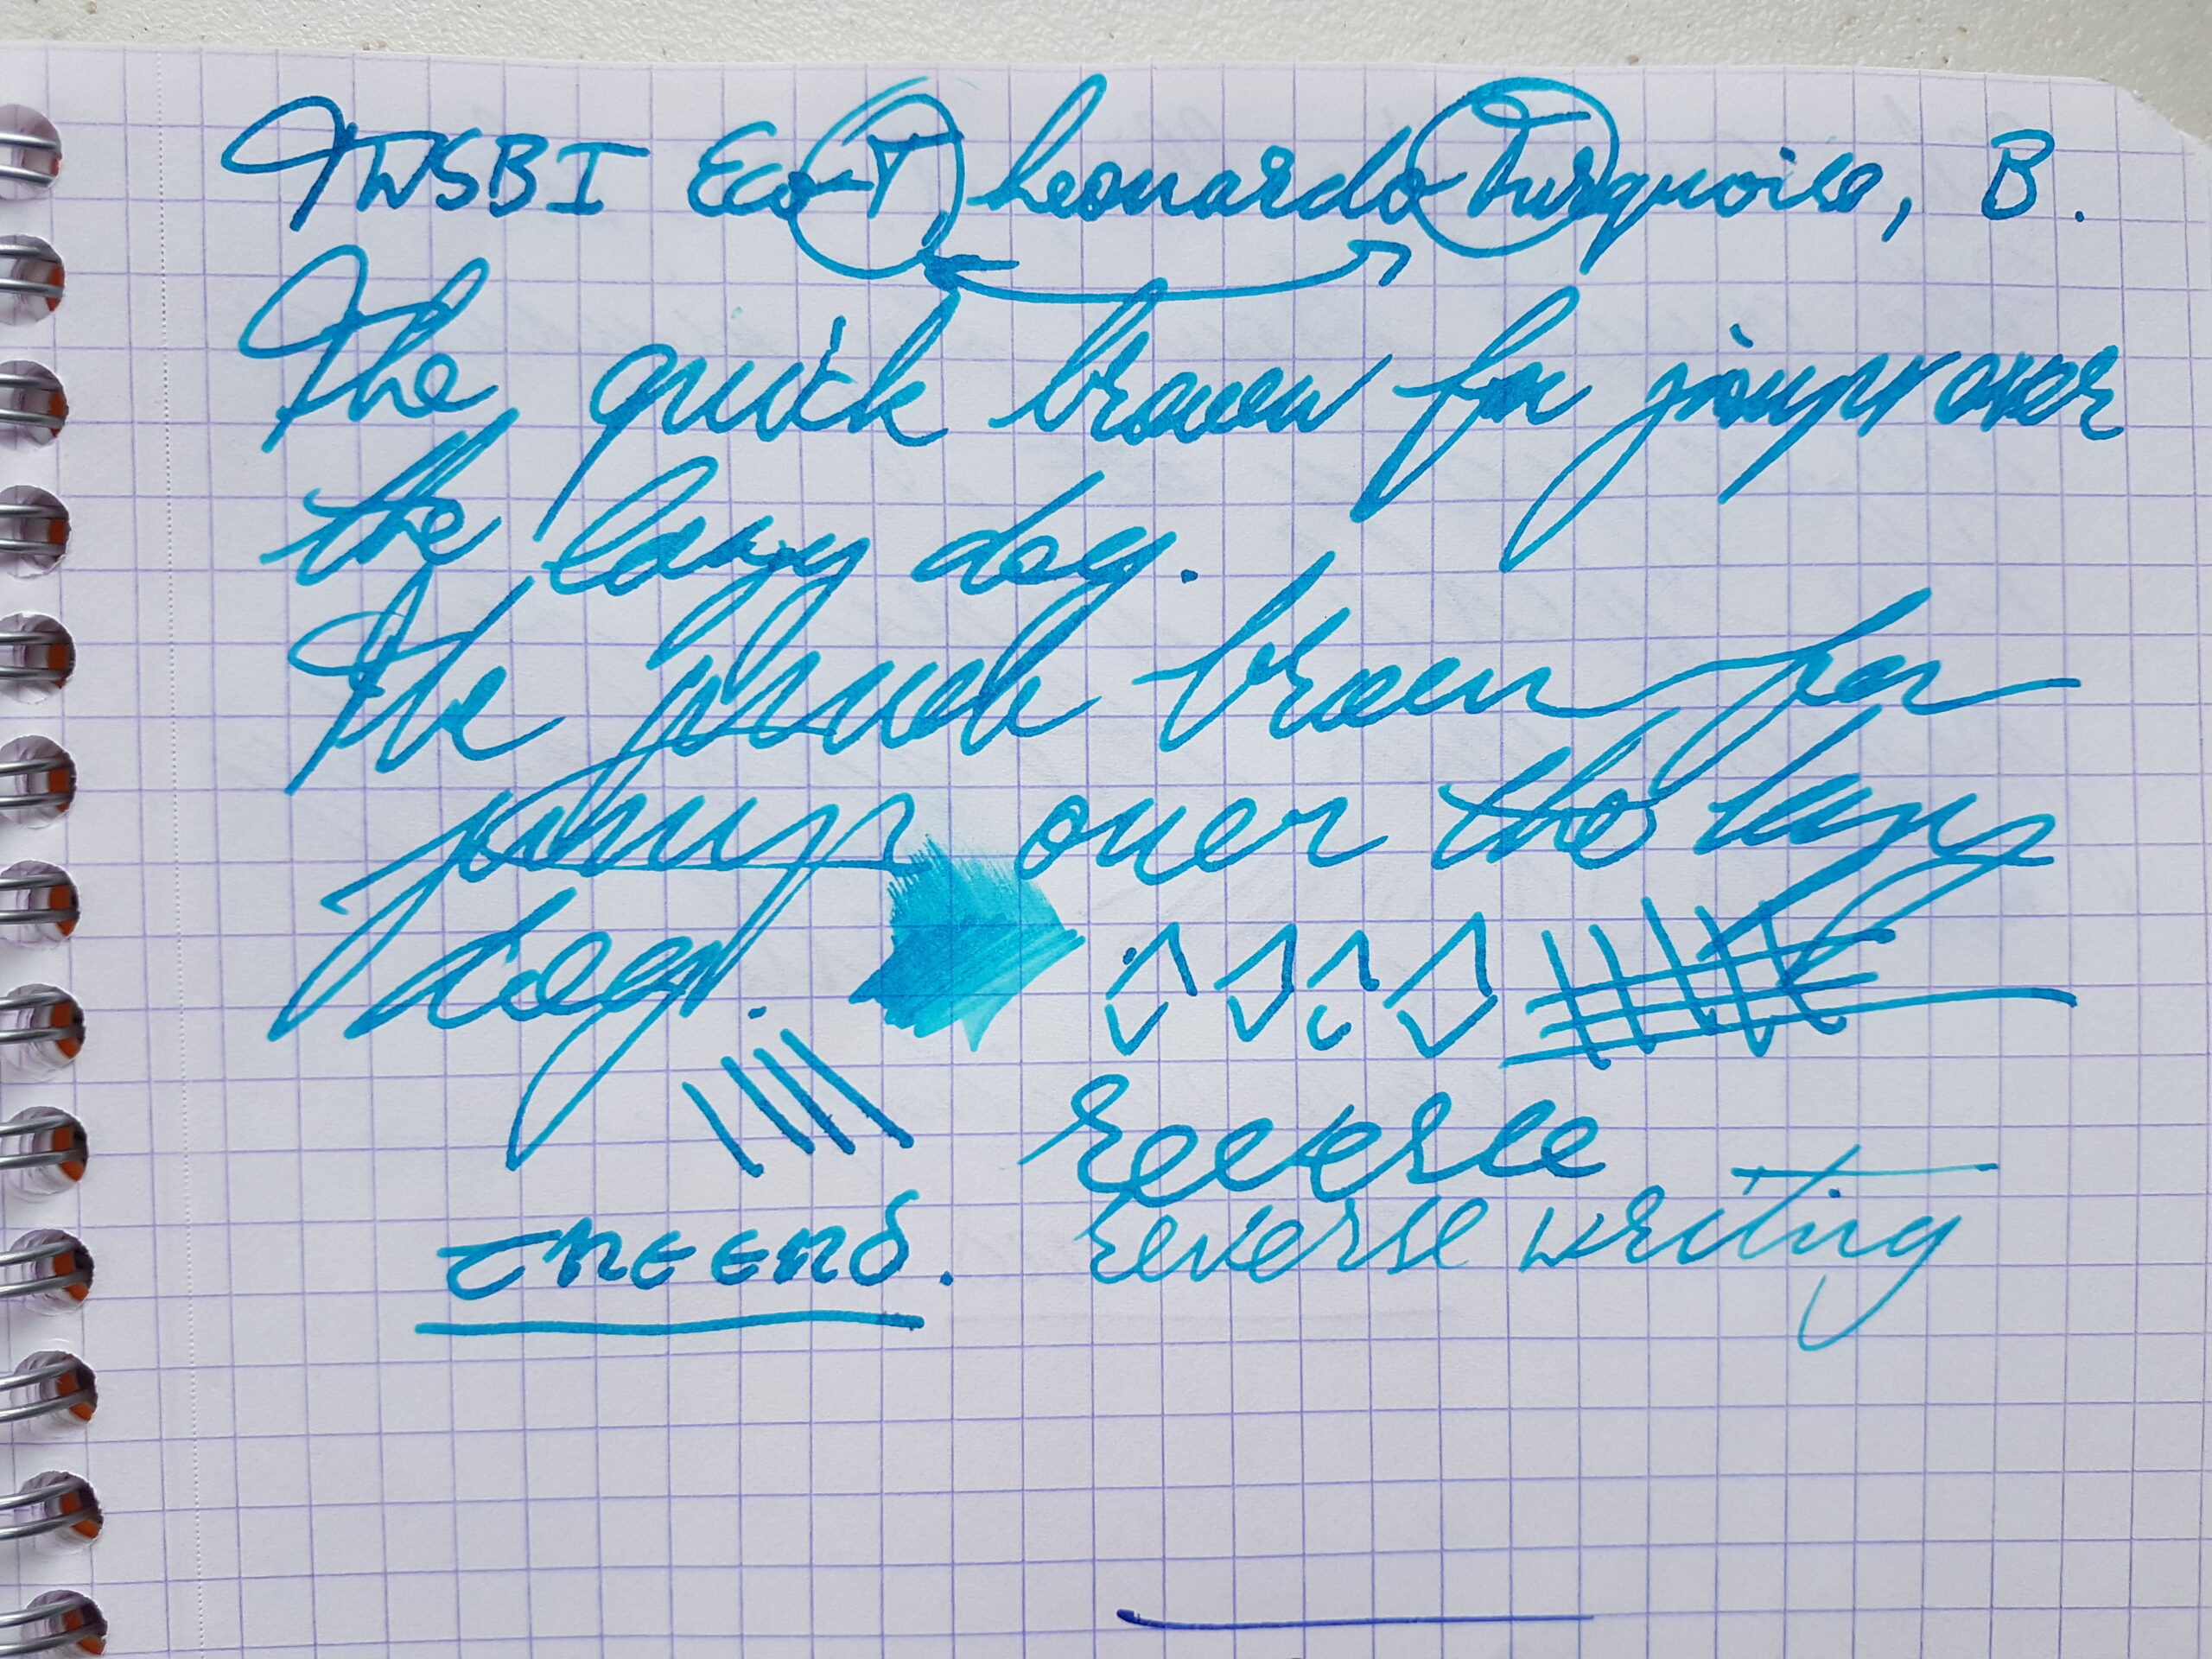 TWSBI Eco-T Leonardo Turquoise, B.
The quick brown fox jumps over
the lazy dog.
The quick brown fox
jump over the lazy
dog.
Reverse
Reverse writing
THE END.